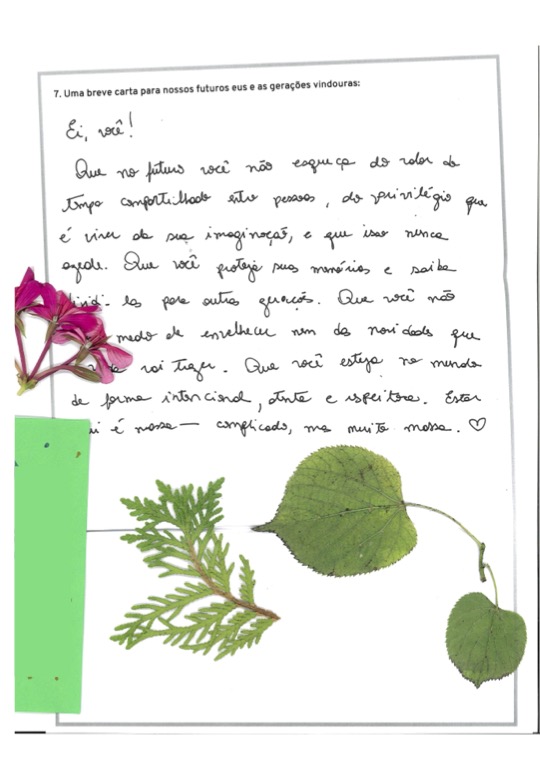 7. Uma breve carta para nossos futuros eus e as gerações vindouras:
Ei, você!
Que no futuro você não esqueça do valor do
tempo compartilhado entre pessoas, do privilégio que
é viver da sua imaginação, e que isso nunca
mude. Que você proteja suas memórias e saiba
dividi-las para outras gerações. Que você não
medo de envelhecer nem das novidades que
vai trazer. Que você esteja no mundo
de forma intencional, atenta e respeitosa. Estar
aqui é massa — complicado, mas muito massa. ♡